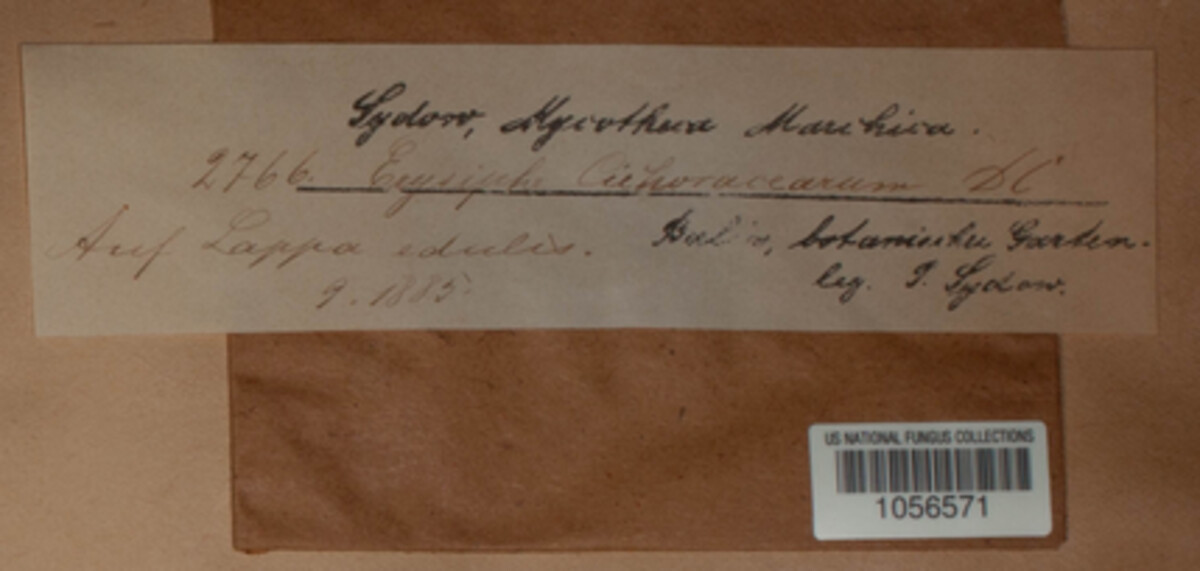 Sydow, Mycotheca Marchica.
2766. Erysiphe Cichoracearum DC
Auf Lappa edulis. Berlin, botanischer Garten.
9.1885 leg. P. Sydow.
US NATIONAL FUNGUS COLLECTIONS
1056571